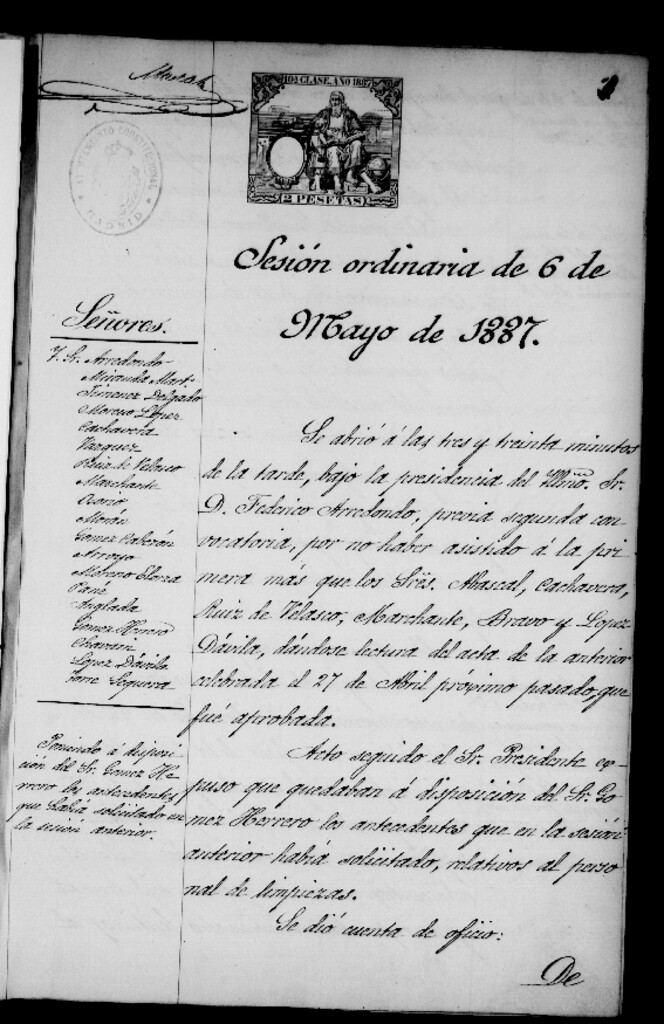 10ª CLASE, AÑO 1887
2 PESETAS
AYUNTAMIENTO CONSTITUCIONAL
MADRID
Sesión ordinaria de 6 de
Mayo de 1887.
Señores.
Sr. Arredondo
Miranda Mart.
Jimenez Delgado
Moreno López
Cachavera
Vazquez
Ruiz de Velasco
Marchante
Osorio
Morán
Gomez
Arroyo
Moreno Elorza
Pané
Anglada
Gomez Herrero
Chavarri
López Dávila
Sequera
Poniendo á disposi-
ción del Sr. Gomez He-
rrero los antecedentes
que había solicitado en
la sesion anterior.
Se abrió á las tres y treinta minutos
de la tarde, bajo la presidencia del Illmo. Sr.
D. Federico Arredondo, previa segunda con-
vocatoria, por no haber asistido á la pri-
mera más que los Srēs. Abascal, Cachavera,
Ruiz de Velasco, Marchante, Bravo y Lopez
Dávila, dándose lectura del acta de la anterior
celebrada el 27 de Abril próximo pasado, que
fué aprobada.
Acto seguido el Sr. Presidente ex-
puso que quedaban á disposición del Sr. Go-
mez Herrero los antecedentes que en la sesión
anterior había solicitado, relativos al perso-
nal de limpiezas.
Se dió cuenta de oficio:
De